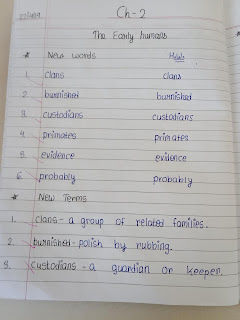 Ch-2
The Early humans
* New words
1. clans clans
2. burnished burnished
3. custodians custodians
4. primates primates
5. evidence evidence
6. probably probably
* New Terms
1. clans - a group of related families.
2. burnished - polish by rubbing.
3. custodians - a guardian or keeper.